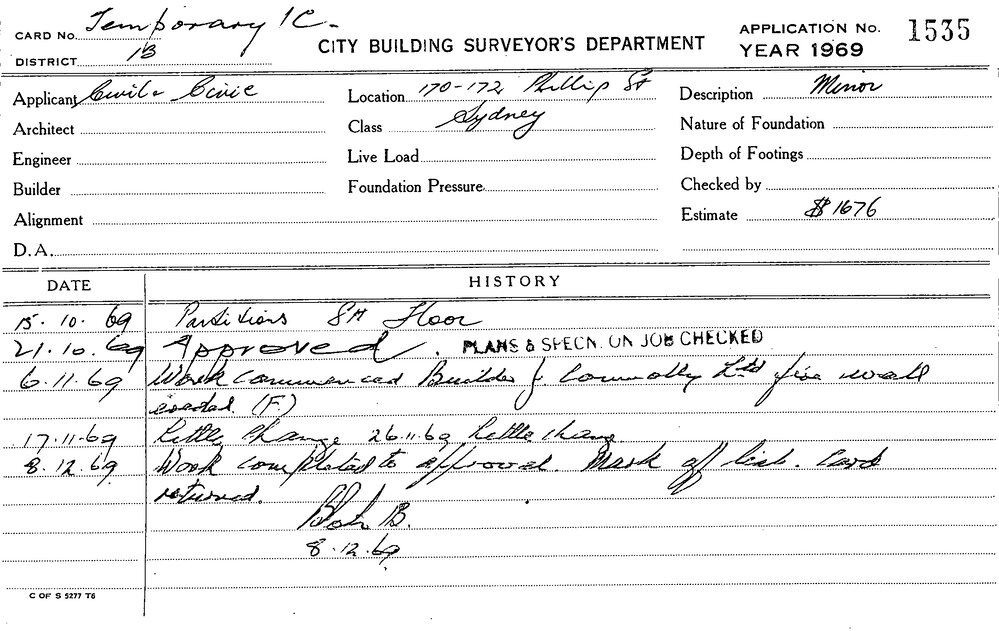 CARD No. Temporary 1C-
DISTRICT 13
CITY BUILDING SURVEYOR'S DEPARTMENT
APPLICATION No. 1535
YEAR 1969
Applicant Civil & Civic
Location 170-172 Phillip St
Description Minor
Architect
Class Sydney
Nature of Foundation
Engineer
Live Load
Depth of Footings
Builder
Foundation Pressure
Checked by
Alignment
Estimate $1676
D.A.
DATE HISTORY
15.10.69 Partitions 8th Floor
21.10.69 Approved. PLANS & SPECN. ON JOB CHECKED
6.11.69 Work commenced Builder J Connolly Ltd fire wall
(F.)
17.11.69 Little change 26.11.69 Little change
8.12.69 Work completed to approval. Mark off list. Card
returned.
B.
8.12.69
C OF S 5277 T6